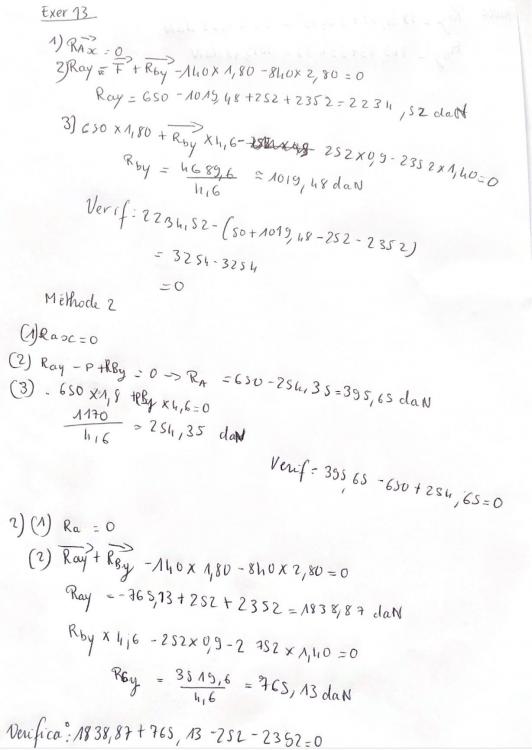 Exer 13
1) RAx = 0
2) Ray = F + Rby - 140 x 1,80 - 840 x 2,80 = 0
Ray = 650 - 1019,48 + 252 + 2352 = 2234,52 daN
3) 650 x 1,80 + Rby x 4,6 - 252 x 0,9 - 2352 x 1,40 = 0
Rby = 4689,6 / 4,6 = 1019,48 daN
Verif : 2234,52 - (50 + 1019,48 - 252 - 2352)
= 3254 - 3254
= 0
Méthode 2
(1) Rax = 0
(2) Ray - P + RBy = 0 -> RA = 650 - 254,35 = 395,65 daN
(3) - 650 x 1,8 + RBy x 4,6 = 0
1170 / 4,6 = 254,35 daN
Verif = 395,65 - 650 + 254,65 = 0
2) (1) Ra = 0
(2) Ray + RBy - 140 x 1,80 - 840 x 2,80 = 0
Ray = -765,13 + 252 + 2352 = 1838,87 daN
Rby x 4,6 - 252 x 0,9 - 2 752 x 1,40 = 0
Rby = 3519,6 / 4,6 = 765,13 daN
Verifica° : 1838,87 + 765,13 - 252 - 2352 = 0